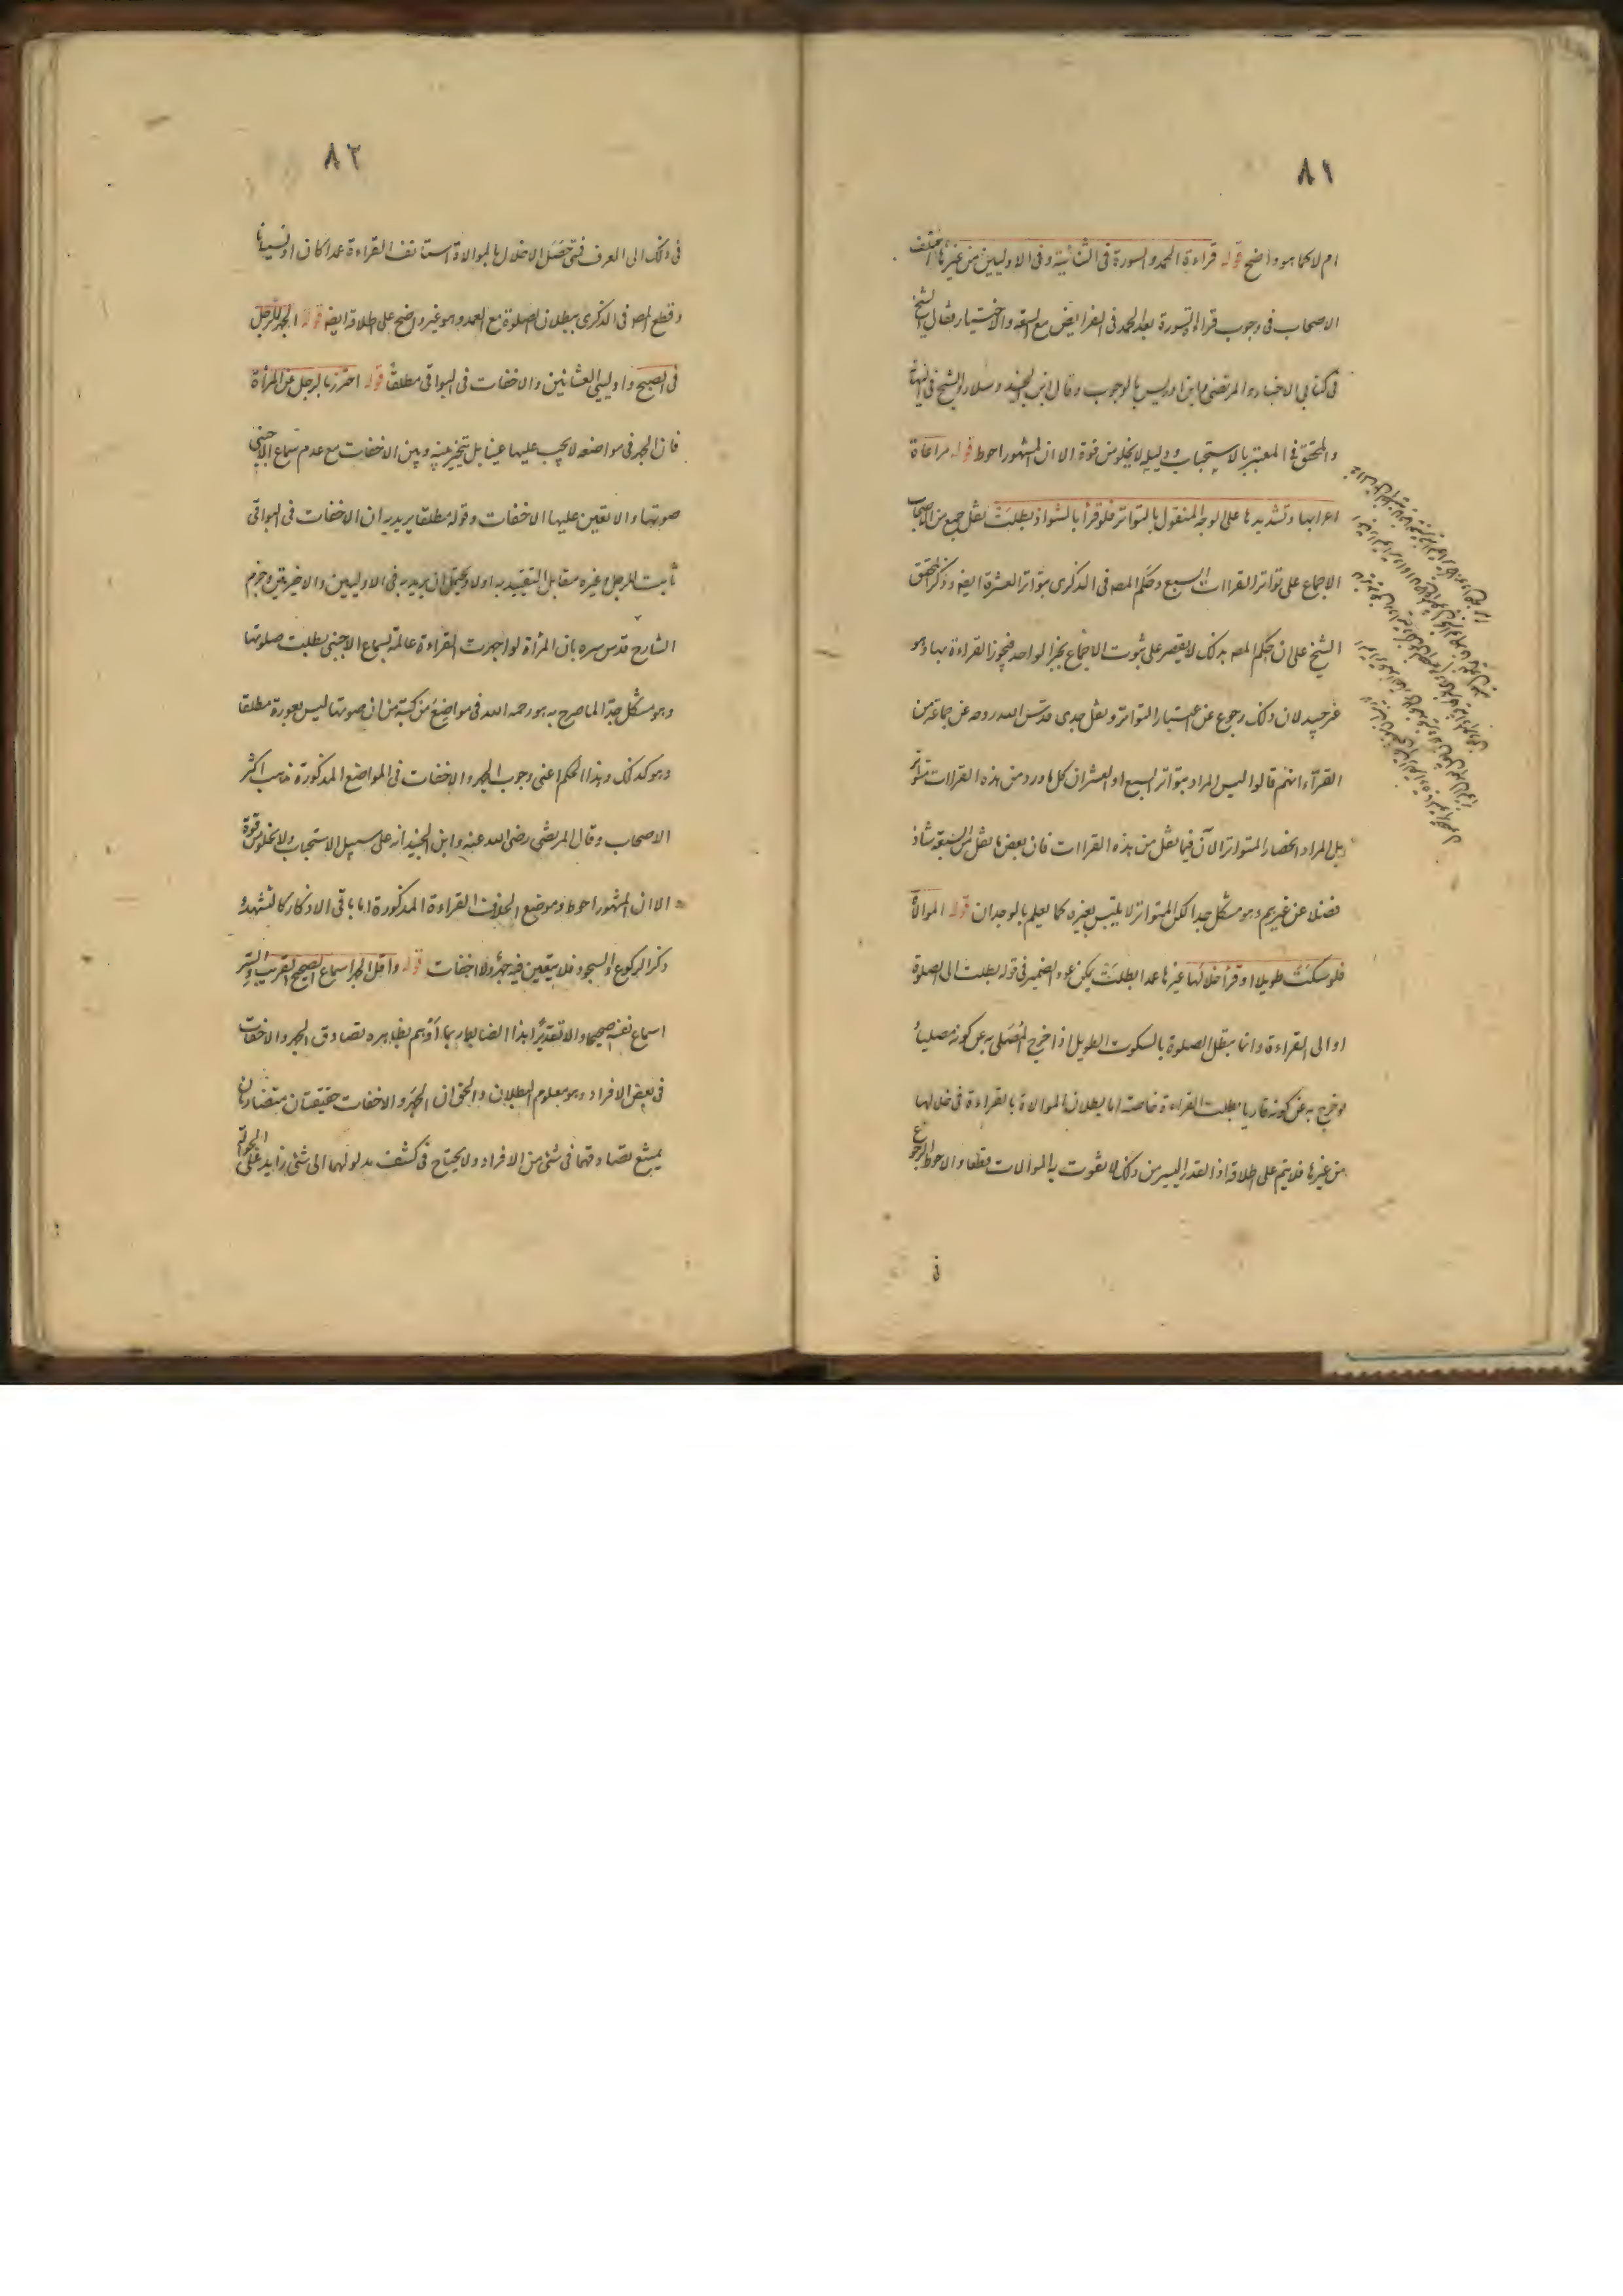 ٨١
ام لا كما هو واضح قوله قراءة الحمد والسورة في الثنائية وفي الاوليين من غيرها اختلف
الاصحاب في وجوب قراءة السورة بعد الحمد في الفرايض مع السعة والاختيار فقال الشيخ
في كتابي الاخبار والمرتضى وابن ادريس بالوجوب وقال ابن الجنيد وسلار والشيخ في النهاية
والمحقق في المعتبر بالاستحباب ودليله لا يخلو من قوة الا ان المشهور احوط قوله مراعاة
اعرابها وتشديدها على الوجه المنقول بالتواتر فلو قرأ بالشواذ بطلت نقل جمع من الاصحاب
الاجماع على تواتر القراات السبع وحكم المصه في الذكرى بتواتر العشرة ايضه وذكر المحقق
الشيخ علي ان حكم المصه بذلك لا يقصر على ثبوت الاجماع بخبر الواحد فيجوز القراءة بها وهو
غير جيد لان ذلك رجوع عن اعتبار التواتر ونقل جدي قدس الله روحه عن جماعة من
القرآء انهم قالوا ليس المراد بتواتر السبع او العشر ان كل ما ورد من هذه القراات متواتر
بل المراد انحصار المتواتر الآن فيما نقل من هذه القراات فان بعض ما نقل من السبعة شاذ
فضلا عن غيرهم وهو مشكل جدا لكن المتواتر لا يلتبس بغيره كما يعلم بالوجدان قوله الموالاة
فلو سكت طويلا او قرأ خلالها غيرها عمدا بطلت يمكن عود الضمير في قوله بطلت الى الصلوة
او الى القراءة وانما يبطل الصلوة بالسكوت الطويل اذا خرج المصلى به عن كونه مصليا
لو خرج به عن كونه قاريا بطلت القراءة خاصة اما بطلان الموالاة بالقراءة في خلالها
من غيرها فلا يتم على اطلاقه اذ القدر اليسير من ذلك لا يفوت به الموالات قطعا والاحوط الرجوع
في
٨٢
في ذلك الى العرف فمتى حصل الاخلال بالموالاة استانف القراءة عمدا كان او نسيانا
وقطع المصه في الذكرى ببطلان الصلوة مع العمد وهو غير واضح على اطلاقه ايضه قوله الجهر للرجل
في الصبح واوليي العشائين والاخفات في البواقي مطلقا قوله احترز بالرجل عن المرأة
فان الجهر في مواضعه لا يجب عليها عينا بل تتخير بينه وبين الاخفات مع عدم سماع الاجنبي
صوتها والا تعين عليها الاخفات وقوله مطلقا يريد به ان الاخفات في البواقي
ثابت للرجل وغيره مقابل التقييد به اولا ويحتمل ان يريد به في الاوليين والاخريتين وجزم
الشارح قدس سره بان المرأة لو اجهرت القراءة عالمة بسماع الاجنبي بطلت صلوتها
وهو مشكل جدا لما صرح به هو رحمه الله في مواضع من كتبه من ان صوتها ليس بعورة مطلقا
وهو كذلك وهذا الحكم اعني وجوب الجهر والاخفات في المواضع المذكورة مذهب اكثر
الاصحاب وقال المرتضى رضى الله عنه وابن الجنيد انه على سبيل الاستحباب ولا يخلو من قوة
الا ان المشهور احوط وموضع الخلاف القراءة المذكورة اما باقي الاذكار كالتشهد و
ذكر الركوع والسجود فلا يتعين فيه جهر ولا اخفات قوله واقل الجهر اسماع الصحيح القريب والسر
اسماع نفسه صحيحا والا تقديرا هذا الضابط ربما اوهم بظاهره تصادق الجهر والاخفات
في بعض الافراد وهو معلوم البطلان والحق ان الجهر والاخفات حقيقتان متضادتان
يمتنع تصادقهما في شئ من الافراد ولا يحتاج في كشف مدلولهما الى شئ زايد على الحوالة